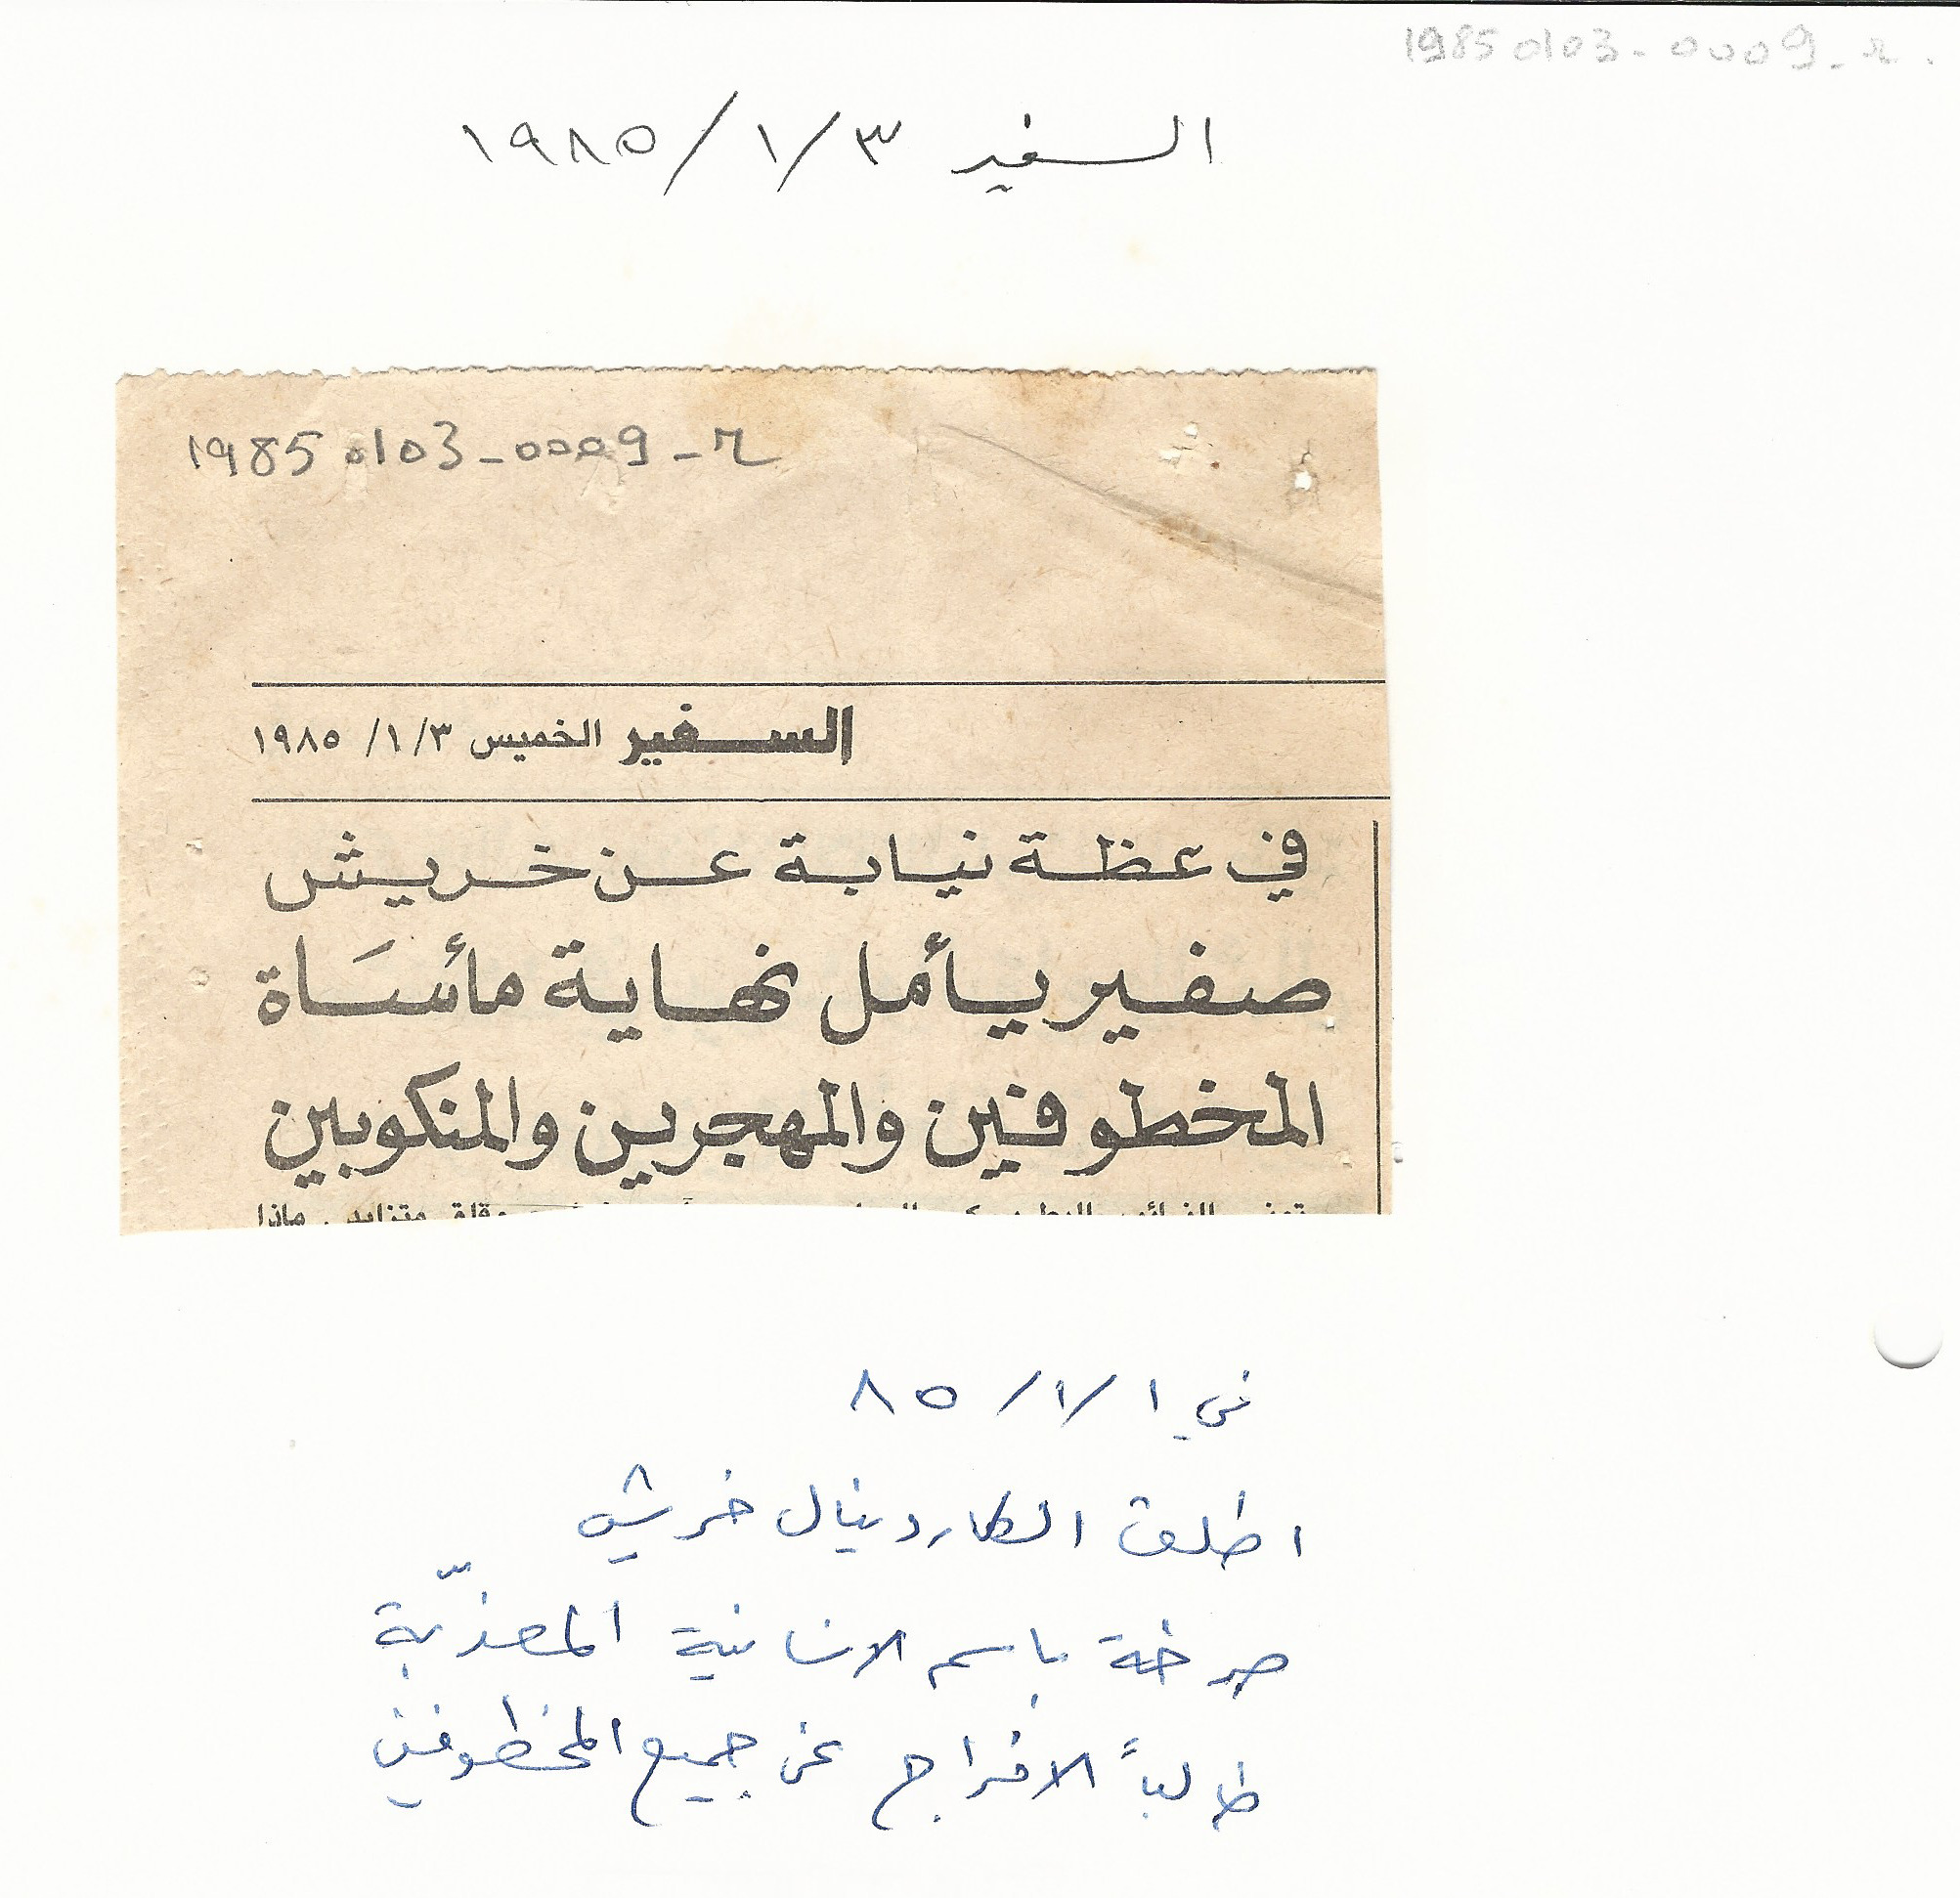 19850103-0009-r
السفير ٣/١/١٩٨٥
19850103-0009-r
السفير الخميس ٣/١/ ١٩٨٥
في عظة نيابة عن خريش
صفير يأمل نهاية مأساة
المخطوفين والمهجرين والمنكوبين
وقلق متزايد . ماذا
في ١/١/ ٨٥
اطلق الكاردينال خريش
صرخة باسم الانسانية المعذّبة
طالباً الافراج عن جميع المخطوفين